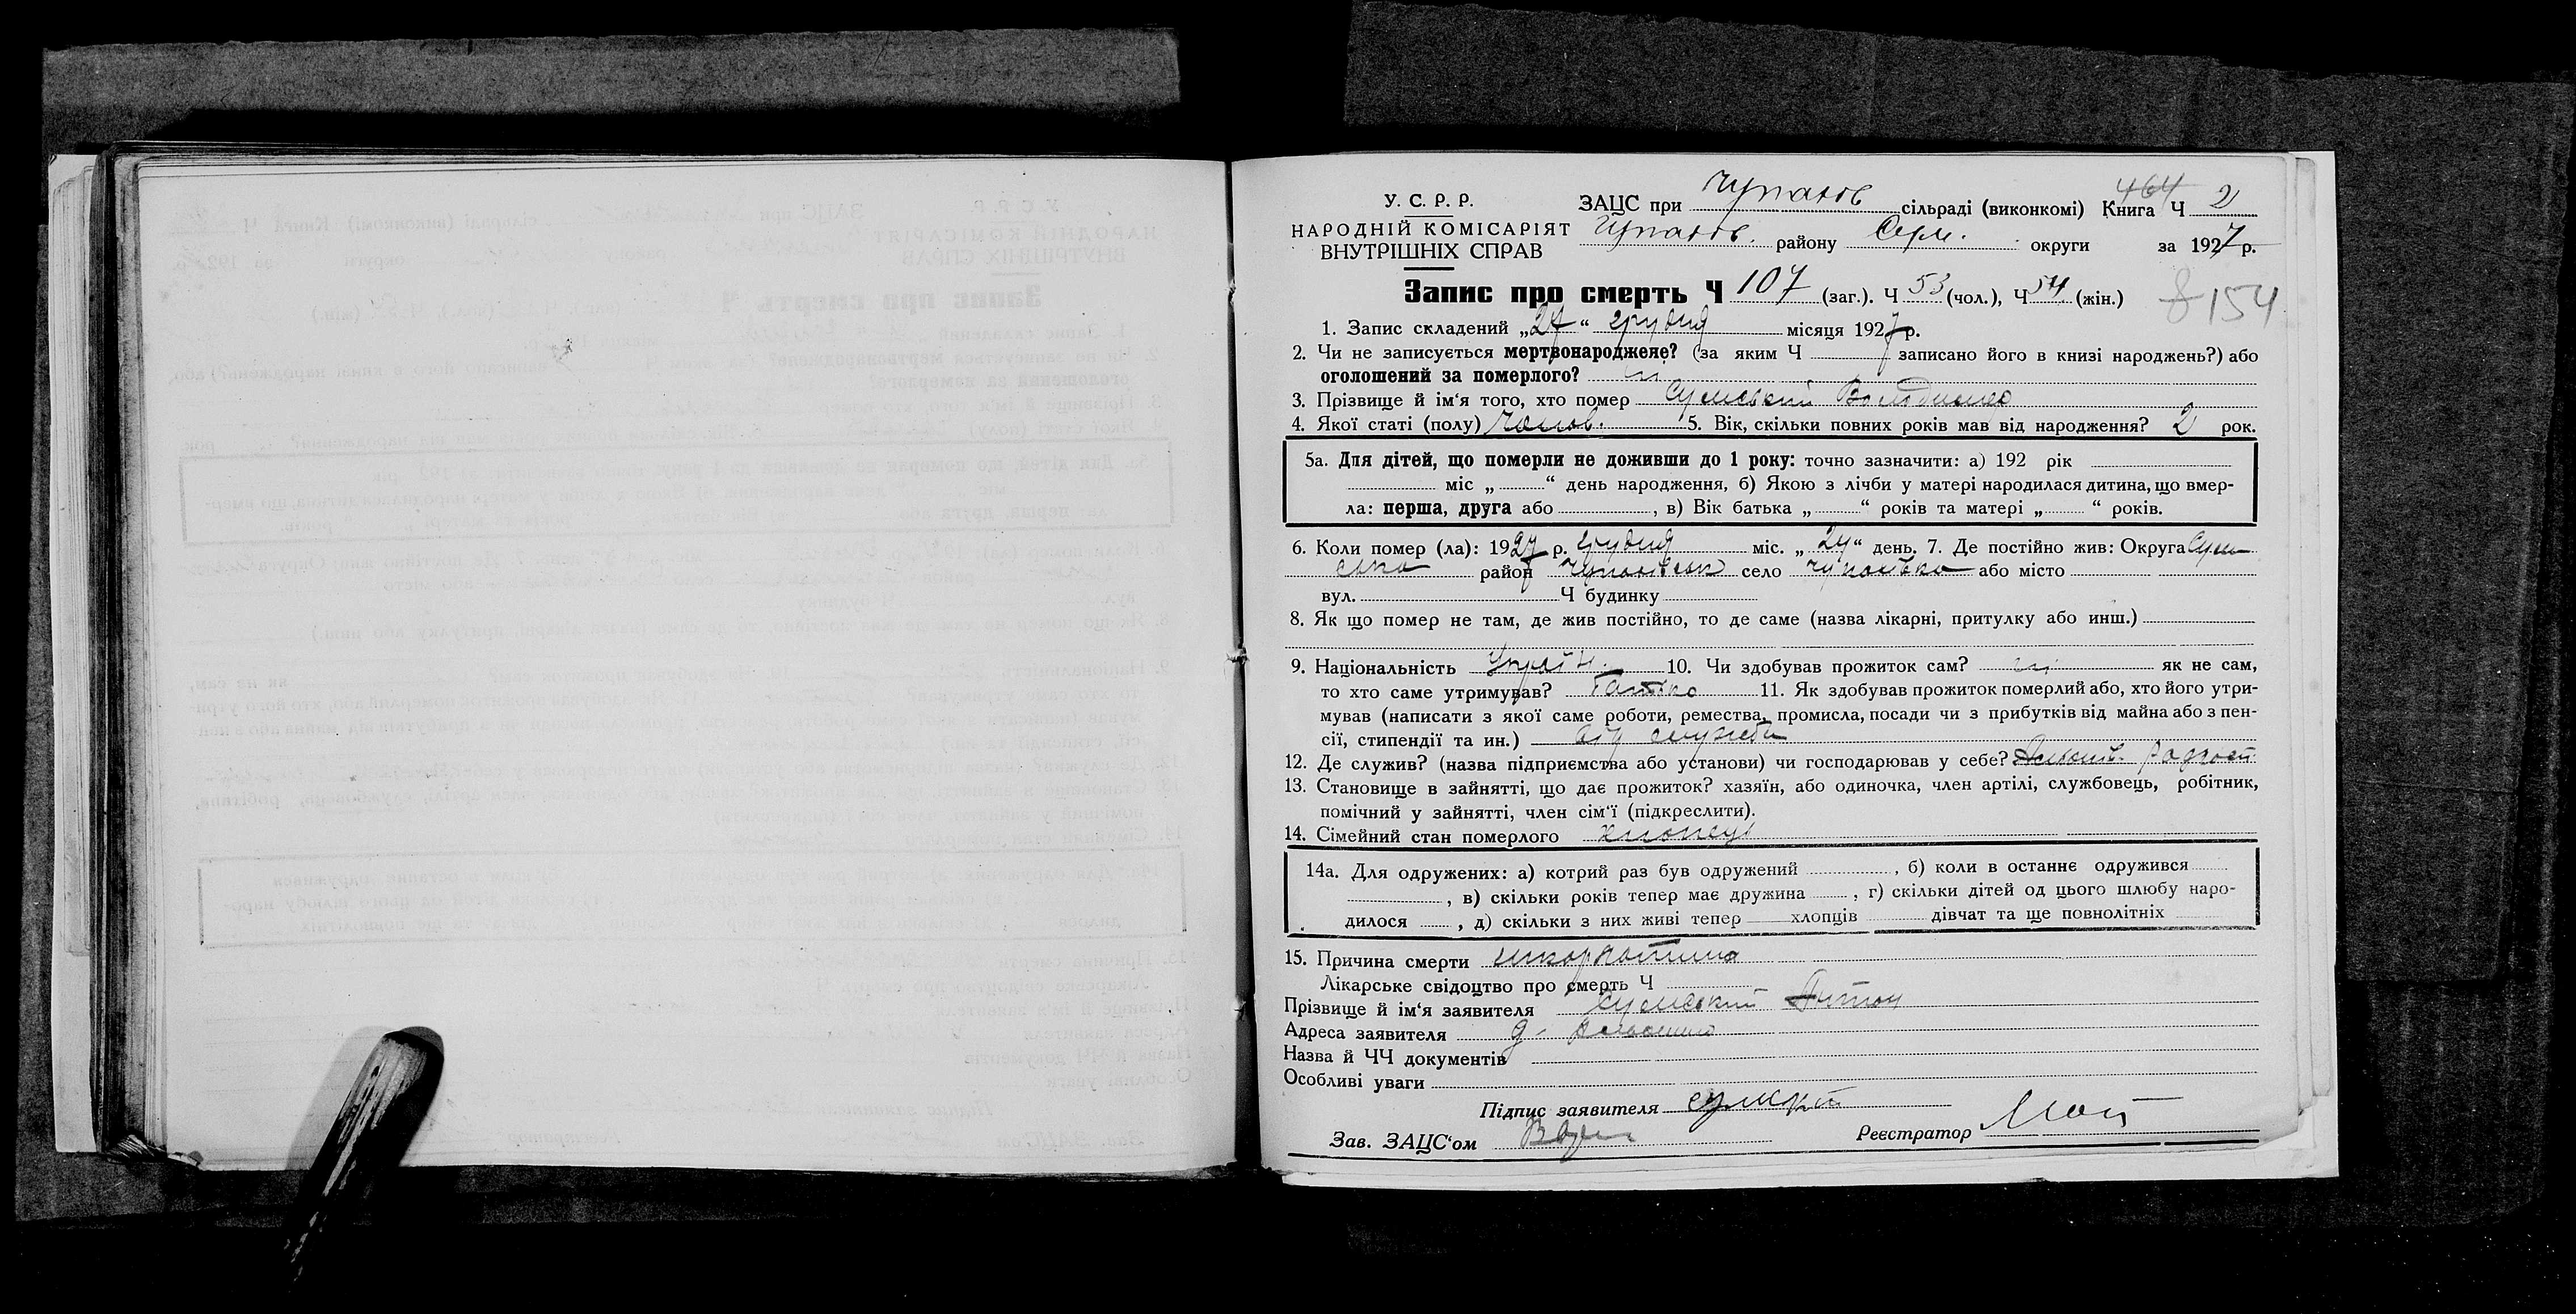 У. С. Р. Р.
НАРОДНІЙ КОМІСАРІЯТ
ВНУТРІШНІХ СПРАВ
ЗАЦС при сільраді (виконкомі) Книга Ч 2
464
району округи за 1927 р.
Запис про смерть Ч 107 (заг.). Ч 53 (чол.), Ч 54 (жін.)
154
1. Запис складений „27“ грудня місяця 1927 р.
2. Чи не записується мертвонароджене? (за яким Ч записано його в книзі народжень?) або
оголошений за померлого? ні
3. Прізвище й ім‘я того, хто помер Сумський Володимир
4. Якої статі (полу) Чолов. 5. Вік, скільки повних років мав від народження? 2 рок.
5а. Для дітей, що померли не доживши до 1 року: точно зазначити: а) 192 рік
міс „ “ день народження, б) Якою з лічби у матері народилася дитина, що вмер-
ла: перша, друга або , в) Вік батька „ “ років та матері „ “ років.
6. Коли помер (ла): 1927 р. грудня міс. „24“ день. 7. Де постійно жив: Округа Сум
ська район село або місто
вул. Ч будинку
8. Як що помер не там, де жив постійно, то де саме (назва лікарні, притулку або инш.)
9. Національність Україн. 10. Чи здобував прожиток сам? ні як не сам,
то хто саме утримував? Батько 11. Як здобував прожиток померлий або, хто його утри-
мував (написати з якої саме роботи, ремества, промисла, посади чи з прибутків від майна або з пен-
сії, стипендії та ин.) від служби
12. Де служив? (назва підприємства або установи) чи господарював у себе?
13. Становище в зайнятті, що дає прожиток? хазяїн, або одиночка, член артілі, службовець, робітник,
помічний у зайнятті, член сім‘ї (підкреслити).
14. Сімейний стан померлого хлопець
14а. Для одружених: а) котрий раз був одружений , б) коли в останнє одружився
, в) скільки років тепер має дружина , г) скільки дітей од цього шлюбу наро-
дилося , д) скільки з них живі тепер хлопців дівчат та ще повнолітніх
15. Причина смерти шкорлатина
Лікарське свідоцтво про смерть Ч
Прізвище й ім‘я заявителя Сумський Антон
Адреса заявителя
Назва й ЧЧ документів
Особливі уваги
Підпис заявителя
Зав. ЗАЦС‘ом Реєстратор